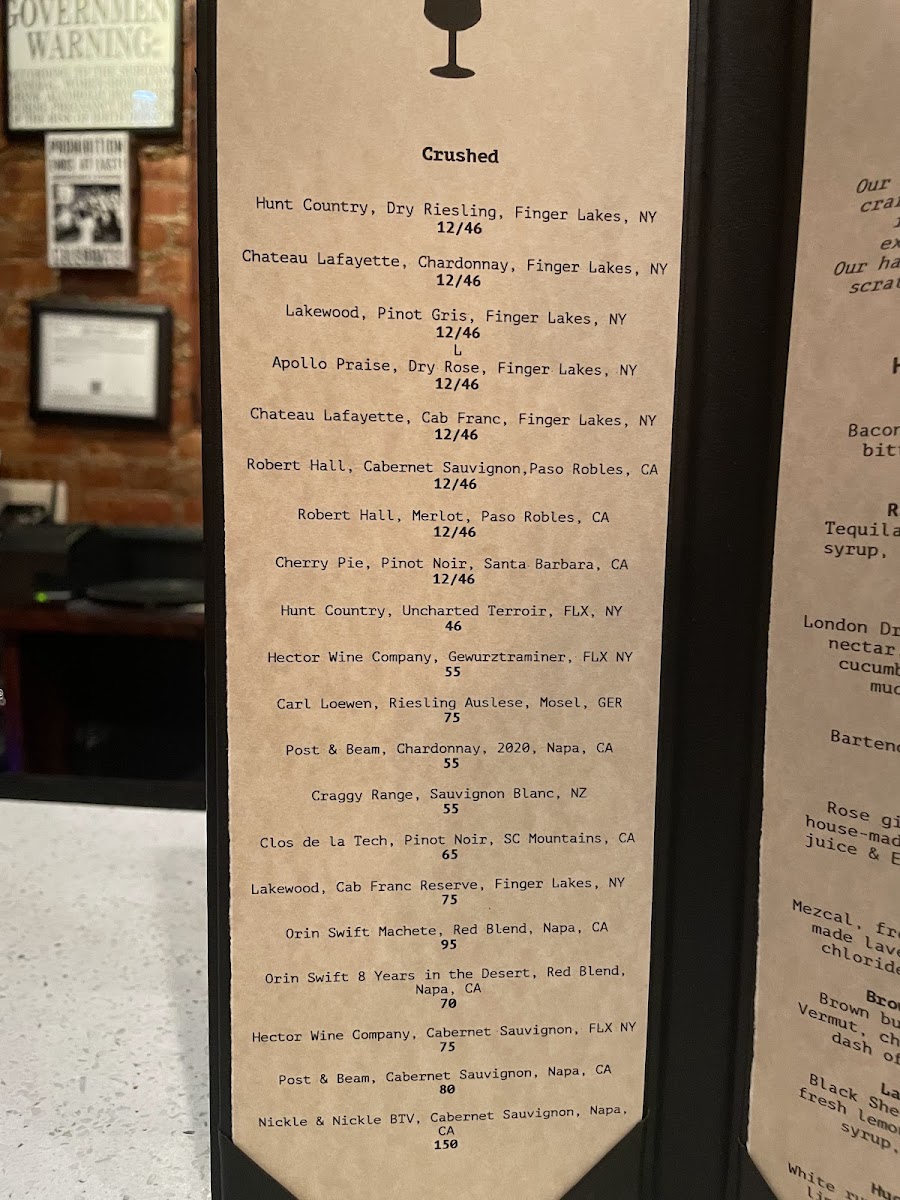 GOVERNMENT
WARNING:
PROHIBITION
ENDS AT LAST!
Crushed
Hunt Country, Dry Riesling, Finger Lakes, NY
12/46
Chateau Lafayette, Chardonnay, Finger Lakes, NY
12/46
Lakewood, Pinot Gris, Finger Lakes, NY
12/46
L
Apollo Praise, Dry Rose, Finger Lakes, NY
12/46
Chateau Lafayette, Cab Franc, Finger Lakes, NY
12/46
Robert Hall, Cabernet Sauvignon,Paso Robles, CA
12/46
Robert Hall, Merlot, Paso Robles, CA
12/46
Cherry Pie, Pinot Noir, Santa Barbara, CA
12/46
Hunt Country, Uncharted Terroir, FLX, NY
46
Hector Wine Company, Gewurztraminer, FLX NY
55
Carl Loewen, Riesling Auslese, Mosel, GER
75
Post & Beam, Chardonnay, 2020, Napa, CA
55
Craggy Range, Sauvignon Blanc, NZ
55
Clos de la Tech, Pinot Noir, SC Mountains, CA
65
Lakewood, Cab Franc Reserve, Finger Lakes, NY
75
Orin Swift Machete, Red Blend, Napa, CA
95
Orin Swift 8 Years in the Desert, Red Blend,
Napa, CA
70
Hector Wine Company, Cabernet Sauvignon, FLX NY
75
Post & Beam, Cabernet Sauvignon, Napa, CA
80
Nickle & Nickle BTV, Cabernet Sauvignon, Napa,
CA
150
Our
Our
Bacon
Tequila
syrup,
London
nectar
mud
Rose
juice &
Mezcal,
made
Brown
Vermut,
dash of
Black
fresh
syrup,
White